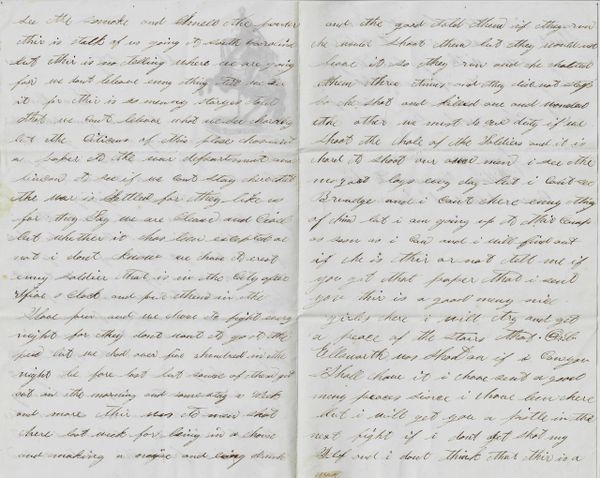 see the smoke and smell the powder
ther is talk of us going to South Carolina
but ther is no telling where we are going
for we dont beleave eny thing till we see
it for ther is so meney told
that we cant beleave what we see
but the Citizens of this place have
a paper to the war department and
lincon to see if we cant stay here till
the war is Settled for they like us
for they Say we are Cleane and Civel
but whether it has bin excepted or
not i dont know we have to rest
eny soldier that is in the City after
five o Clock and put them in the
Slave pen and we have to fight every
night for they dont want to go to the
pen but we had over five hundred in the
night be fore last but some of them got
out in the morning and some stay a week
and more ther was to men shot
here last week for being in a house
and making a and being drunk
and the gard told them if they run
he would shoot them but they would not
beleve it so they run and he halted
them three times and they did not stop
so he shot and killed one and wounded
the other we must do our duty if we
shoot the hole of the Soldiers and it is
hard to shoot our own men i see the
boys eny day but i cant see
Brundge and i cant here eny thing
of him but i am going up to ther Camp
as soon as i can and i will find out
if he is ther or not tell me if
you got that paper that i sent
you ther is a good meny nice
girls here i will try and get
a peace of the stairs that Col
Ellsworth was Shot on if i Can you
Shall have it i have sent a good
meny peaces since i have bin here
but i will get you a pistle in the
next fight if i dont get shot my
Self and i dont think that ther is a